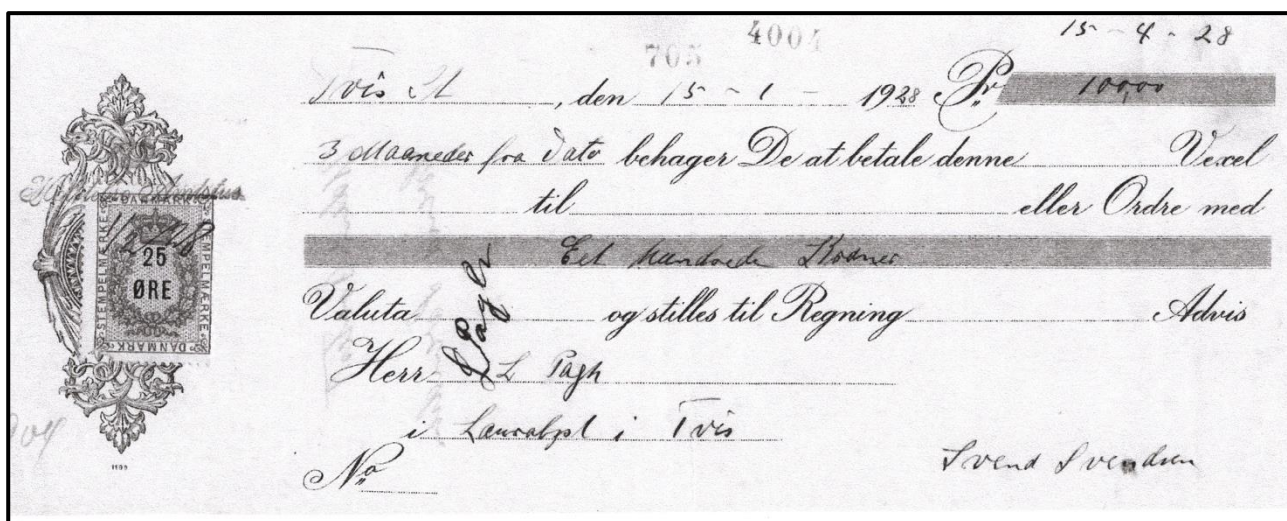 15 - 4 - 28
705 4004
Tvis St , den 15 - 1 - 1928 Pr 100,00
3 Maaneder fra Dato behager De at betale denne Vexel
til eller Ordre med
Eet Hundrede Kroner
Valuta og stilles til Regning Advis
Herr L Pagh
i i Tvis
No
Svend Svendsen
L Pagh
DANMARK
STEMPELMÆRKE
25
ØRE
STEMPELMÆRKE
DANMARK
1/2 28